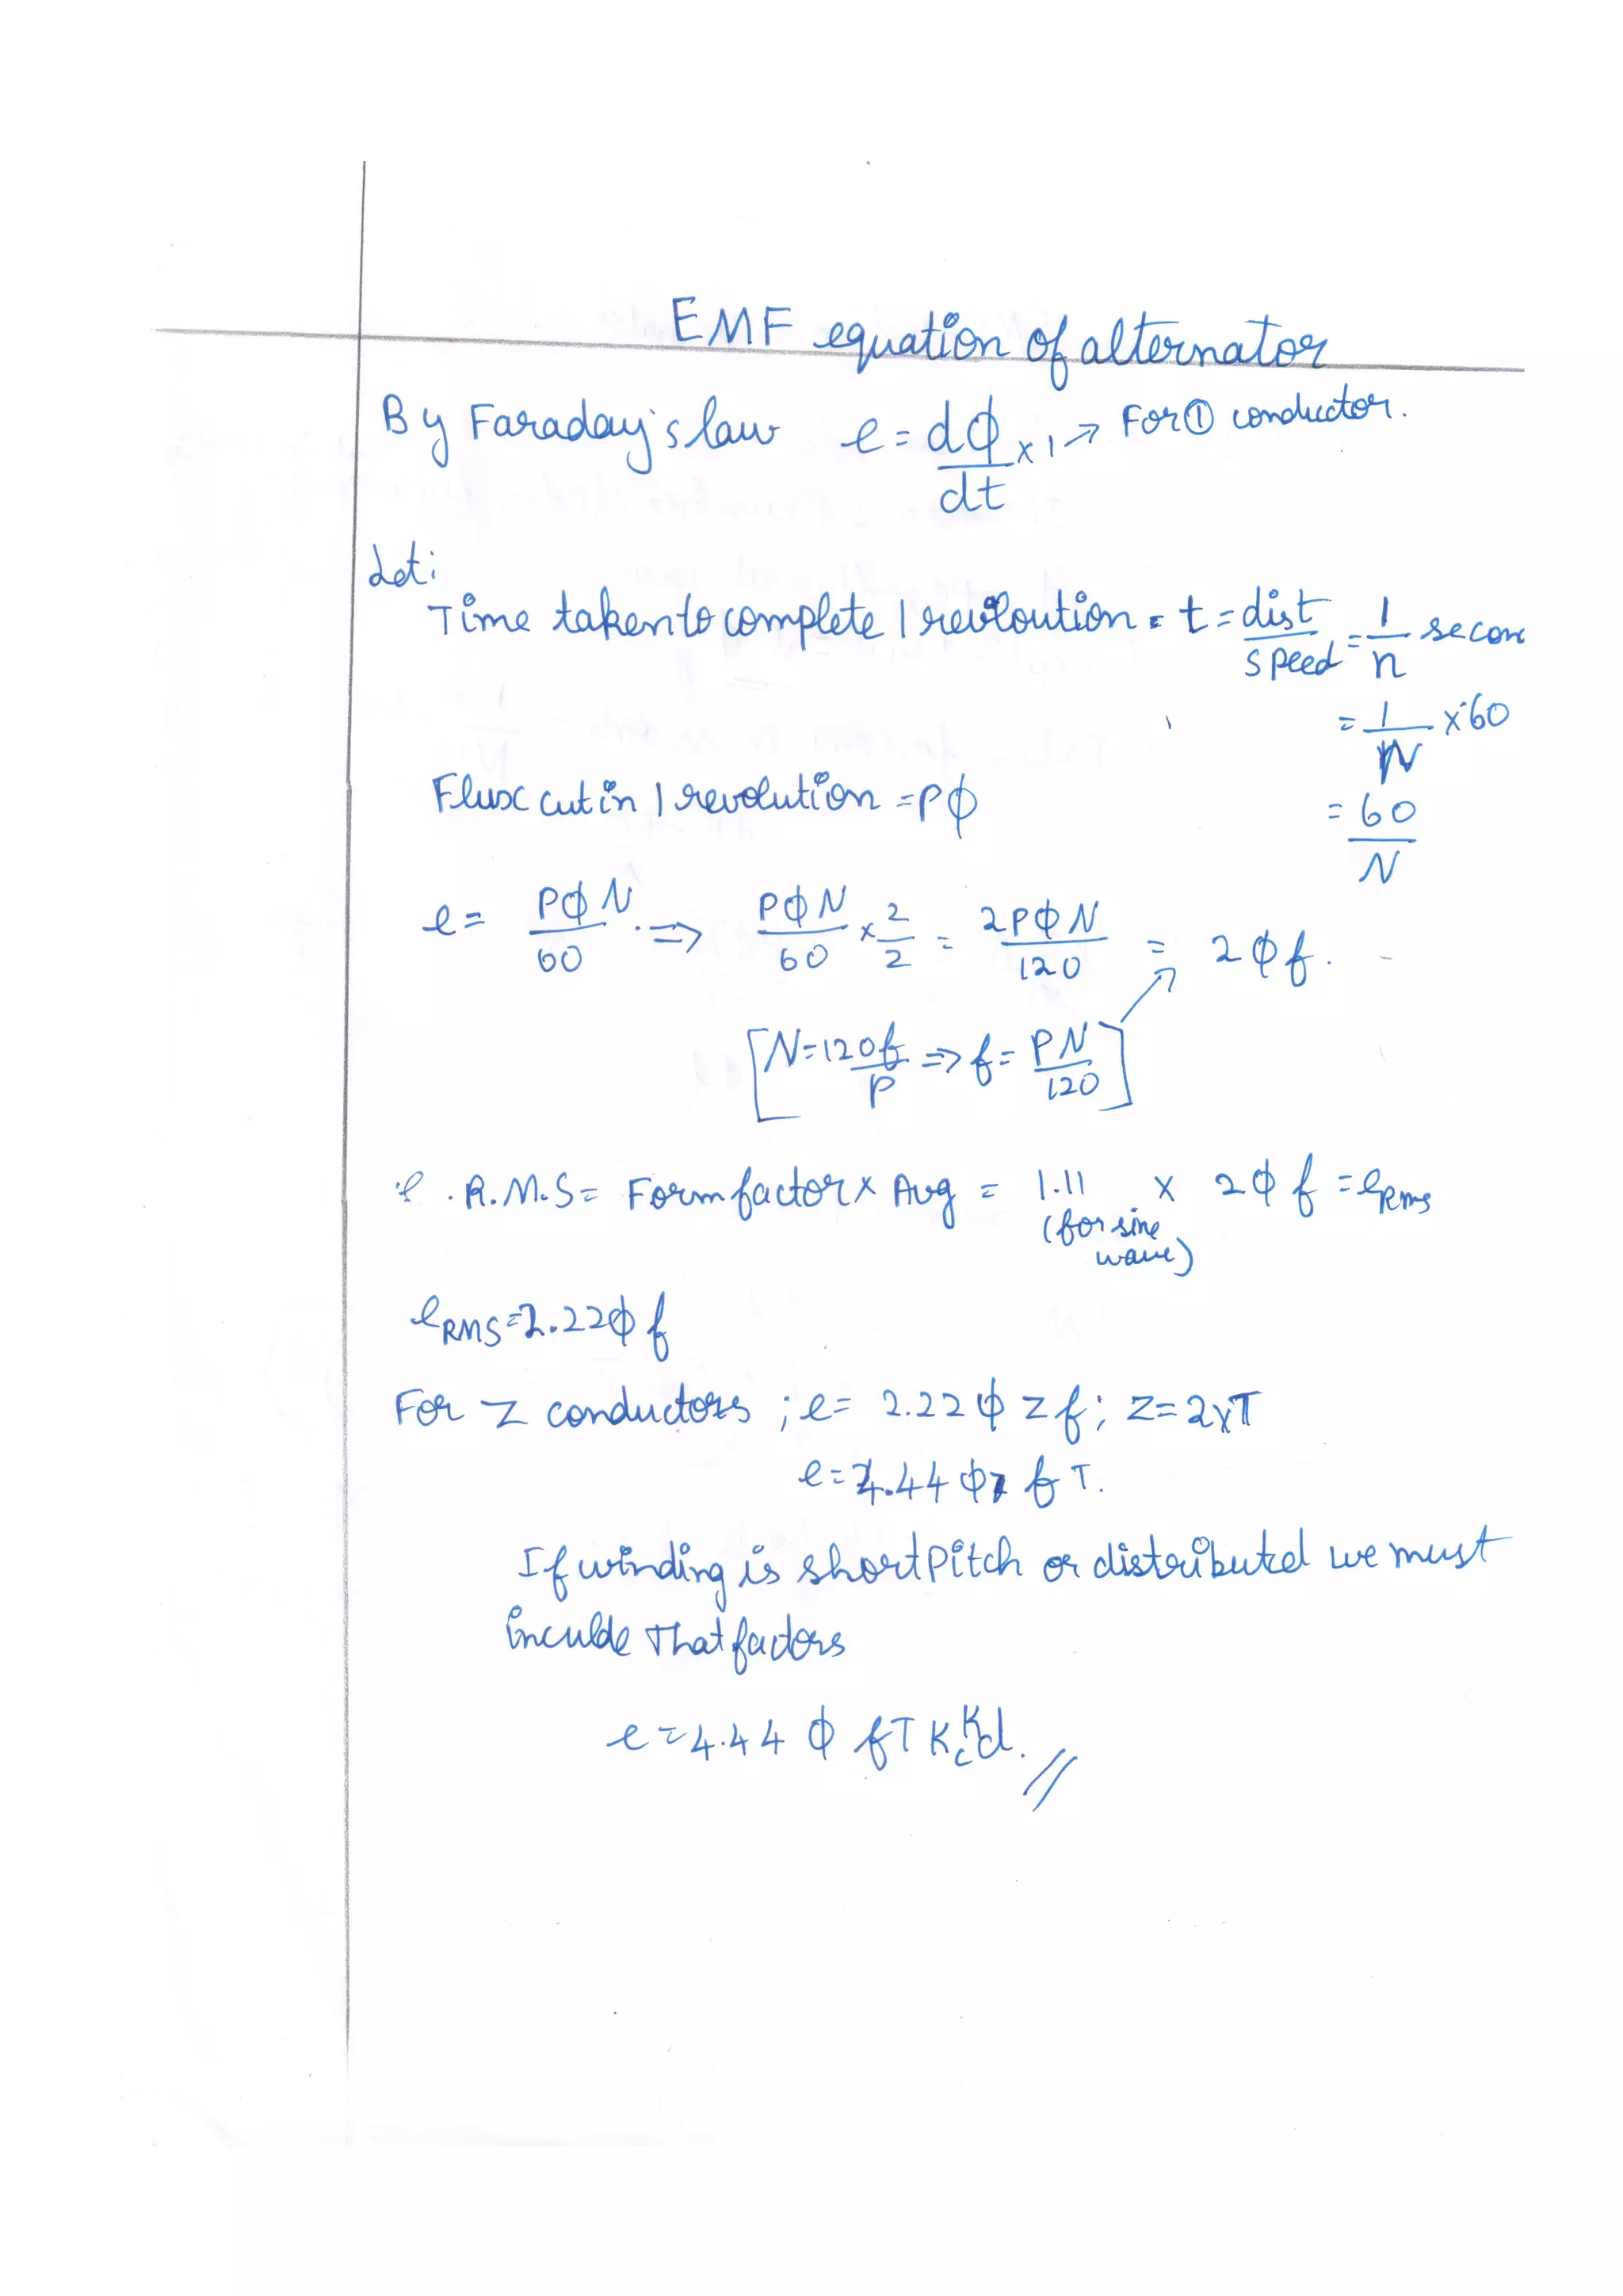 EMF equation of alternator
By Faraday's law e = dϕ/dt × 1 → For ① conductor.
Let:
Time taken to complete 1 reviloution = t = dist/speed = 1/n secon
= 1/N × 60
Flux cut in 1 revolution = Pϕ
= 60/N
e = PϕN/60 . ⇒ PϕN/60 × 2/2 = 2PϕN/120 = 2ϕf.
[N = 120f/P ⇒ f = PN/120]
e . R.M.S = Form factor × Avg = 1.11 × 2ϕf = eRms
(for sine
wave)
eRMS = 2.22ϕf
For Z conductors ; e = 2.22 ϕ Z f ; Z = 2×T
e = 4.44 ϕ f T.
If winding is short Pitch or distributed we must
inculde That factors
e = 4.44 ϕ f T Kc Kd. //